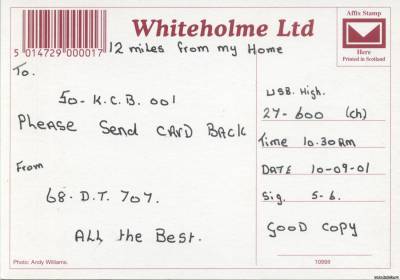 Whiteholme Ltd
Affix Stamp
Here
Printed in Scotland
5 014729 000017
12 miles from my Home
To.
50- K.C.B. 001
Please Send CARD BACK
From
68. D.T. 707.
All the Best.
USB. High.
27-600 (ch)
Time 10.30AM
DATE 10-09-01
Sig. 5-6.
GOOD COPY
Photo: Andy Williams.
10999